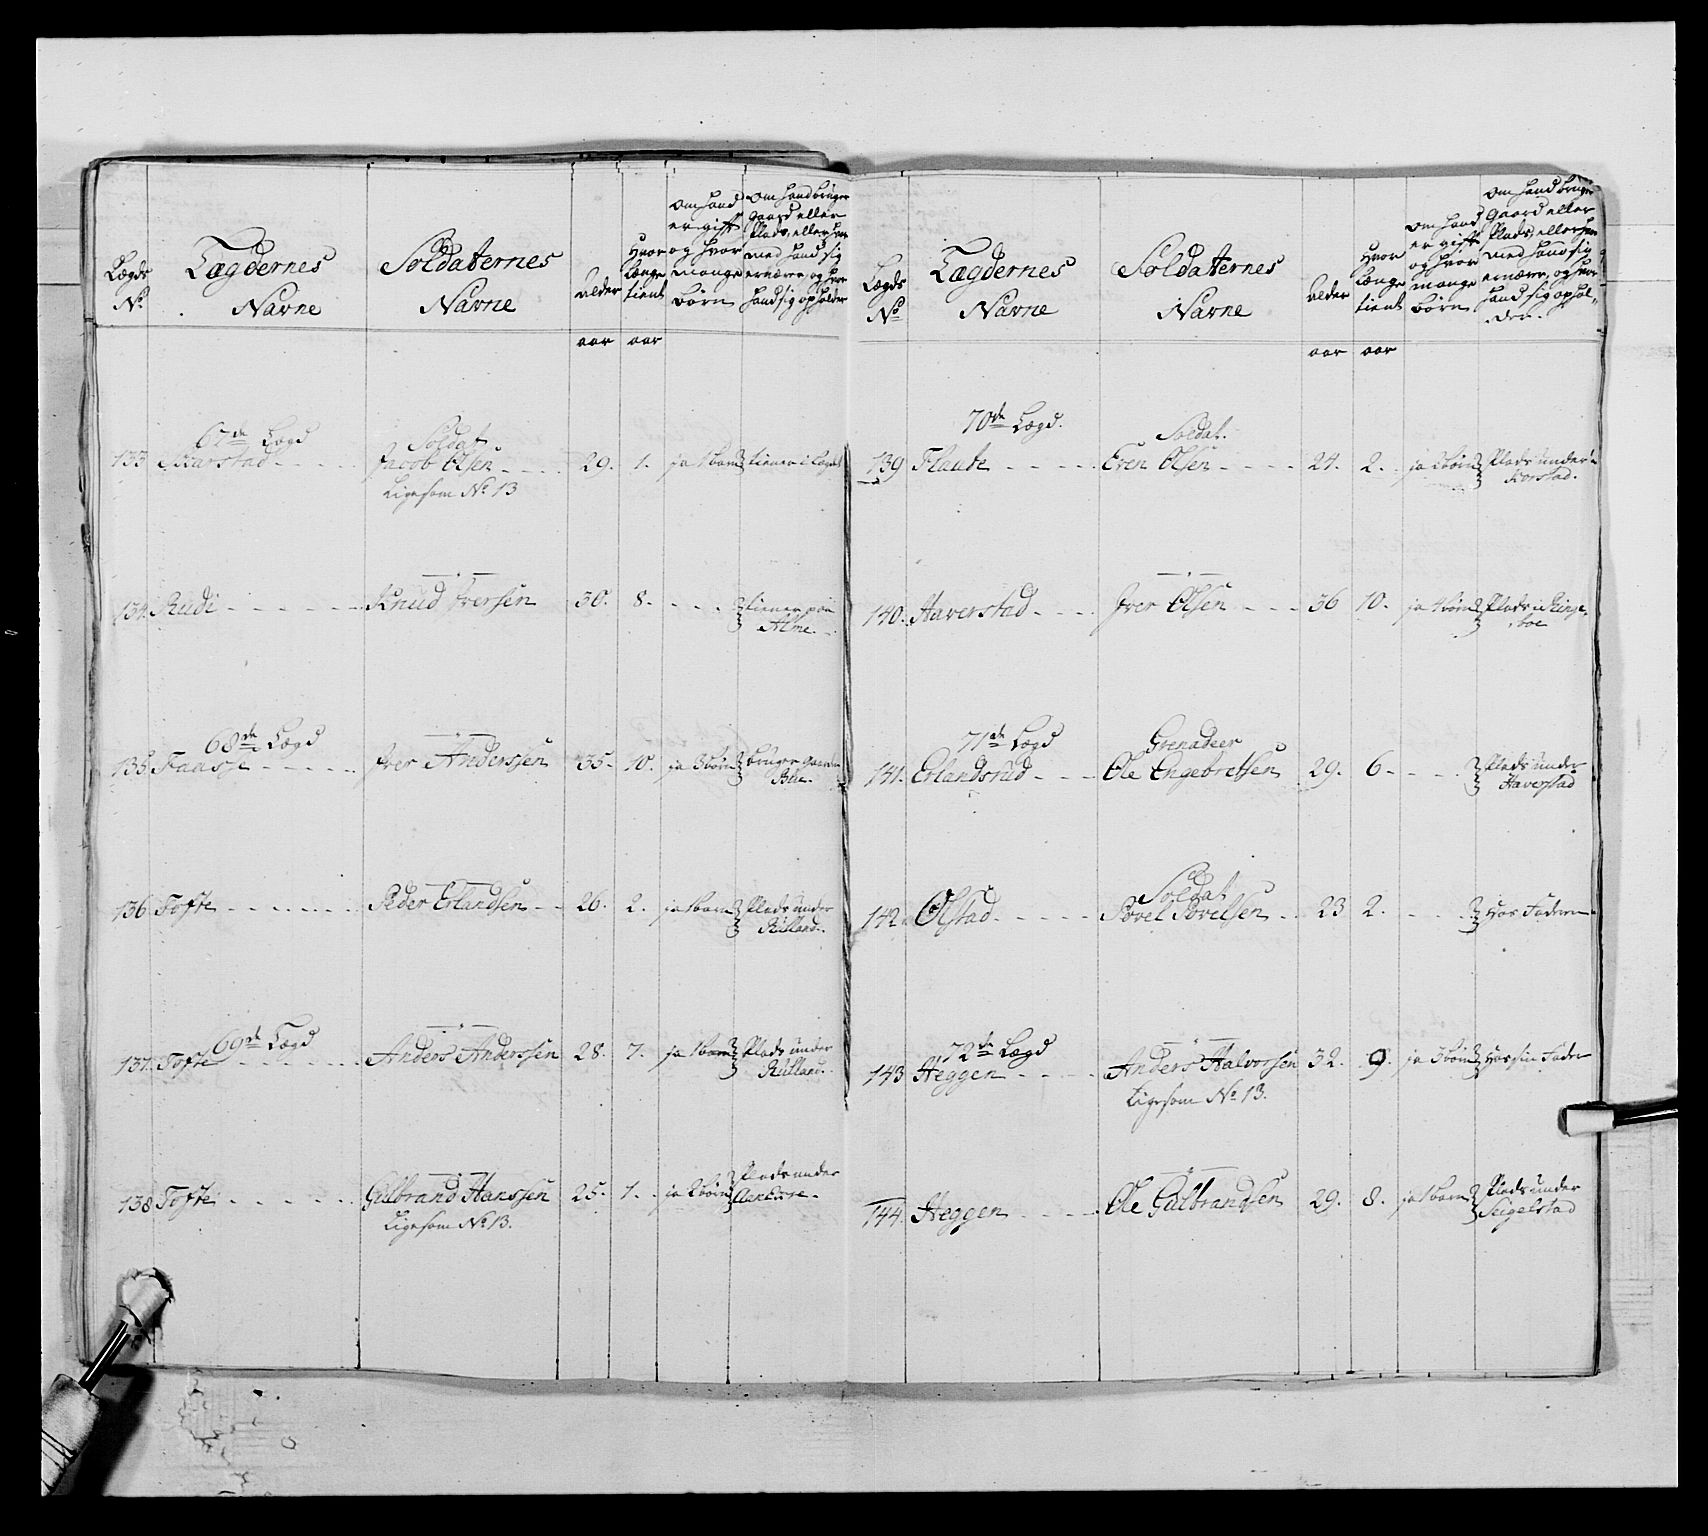 Lægds
No
Lægdernes
Navne
Soldaternes
Navne
alder
aar
Hvor
længe
tient
aar
om hand
er gift
og hvor
mange
börn
om hand bruger
gaard eller
Plads, eller hvor
med hand sig
ernærer, og hvor
hand sig opholder
67de Lægd
Soldat
133 Skarstad Jacob Olsen 29. 1. ja 1 barn tiener i Lægdet
Ligesom No 13
134. Rudi Knud Iversen 30. 8. tiener paa
Alme
68de Lægd
135 Faasse Iver Anderssen 35. 10. ja 3 börn bruger gaarden
136 Tofte Peder Erlandsen 26. 2. ja 1 barn Plads under
Rülland
69de Lægd
137. Tofte Anders Anderssen 28. 7. ja 1 barn Plads under
Rülland
138 Tofte Gulbrand Hanssen 25. 1. ja 2 börn Plads under
Ligesom No 13.
Lægds
No
Lægdernes
Navne
Soldaternes
Navne
alder
aar
Hvor
længe
tient
aar
om hand
er gift
og hvor
mange
börn
om hand bruger
gaard eller
Plads, eller hvor
med hand sig
ernærer, og hvor
hand sig ophol-
der.
70de Lægd.
Soldat.
139 Flaate Even Olsen 24. 2. ja 2 börn Plads under
Korstad.
140. Haverstad Iver Olsen 36 10. ja 4 börn Plads i Ringe-
boe
71de Lægd
Grenadeer
141. Erlandsrud Ole Engebretsen 29. 6 Plads under
Haverstad
Soldat
142. Olstad Povel Povelsen 23 2. Hos Faderen
72de Lægd
143 Heggen Anders Halvorsen 32. 9. ja 3 börn Hos sin Fader
Ligesom No 13.
144. Heggen Ole Gulbrandsen 29. 8. ja 1 barn Plads under
Seigelstad